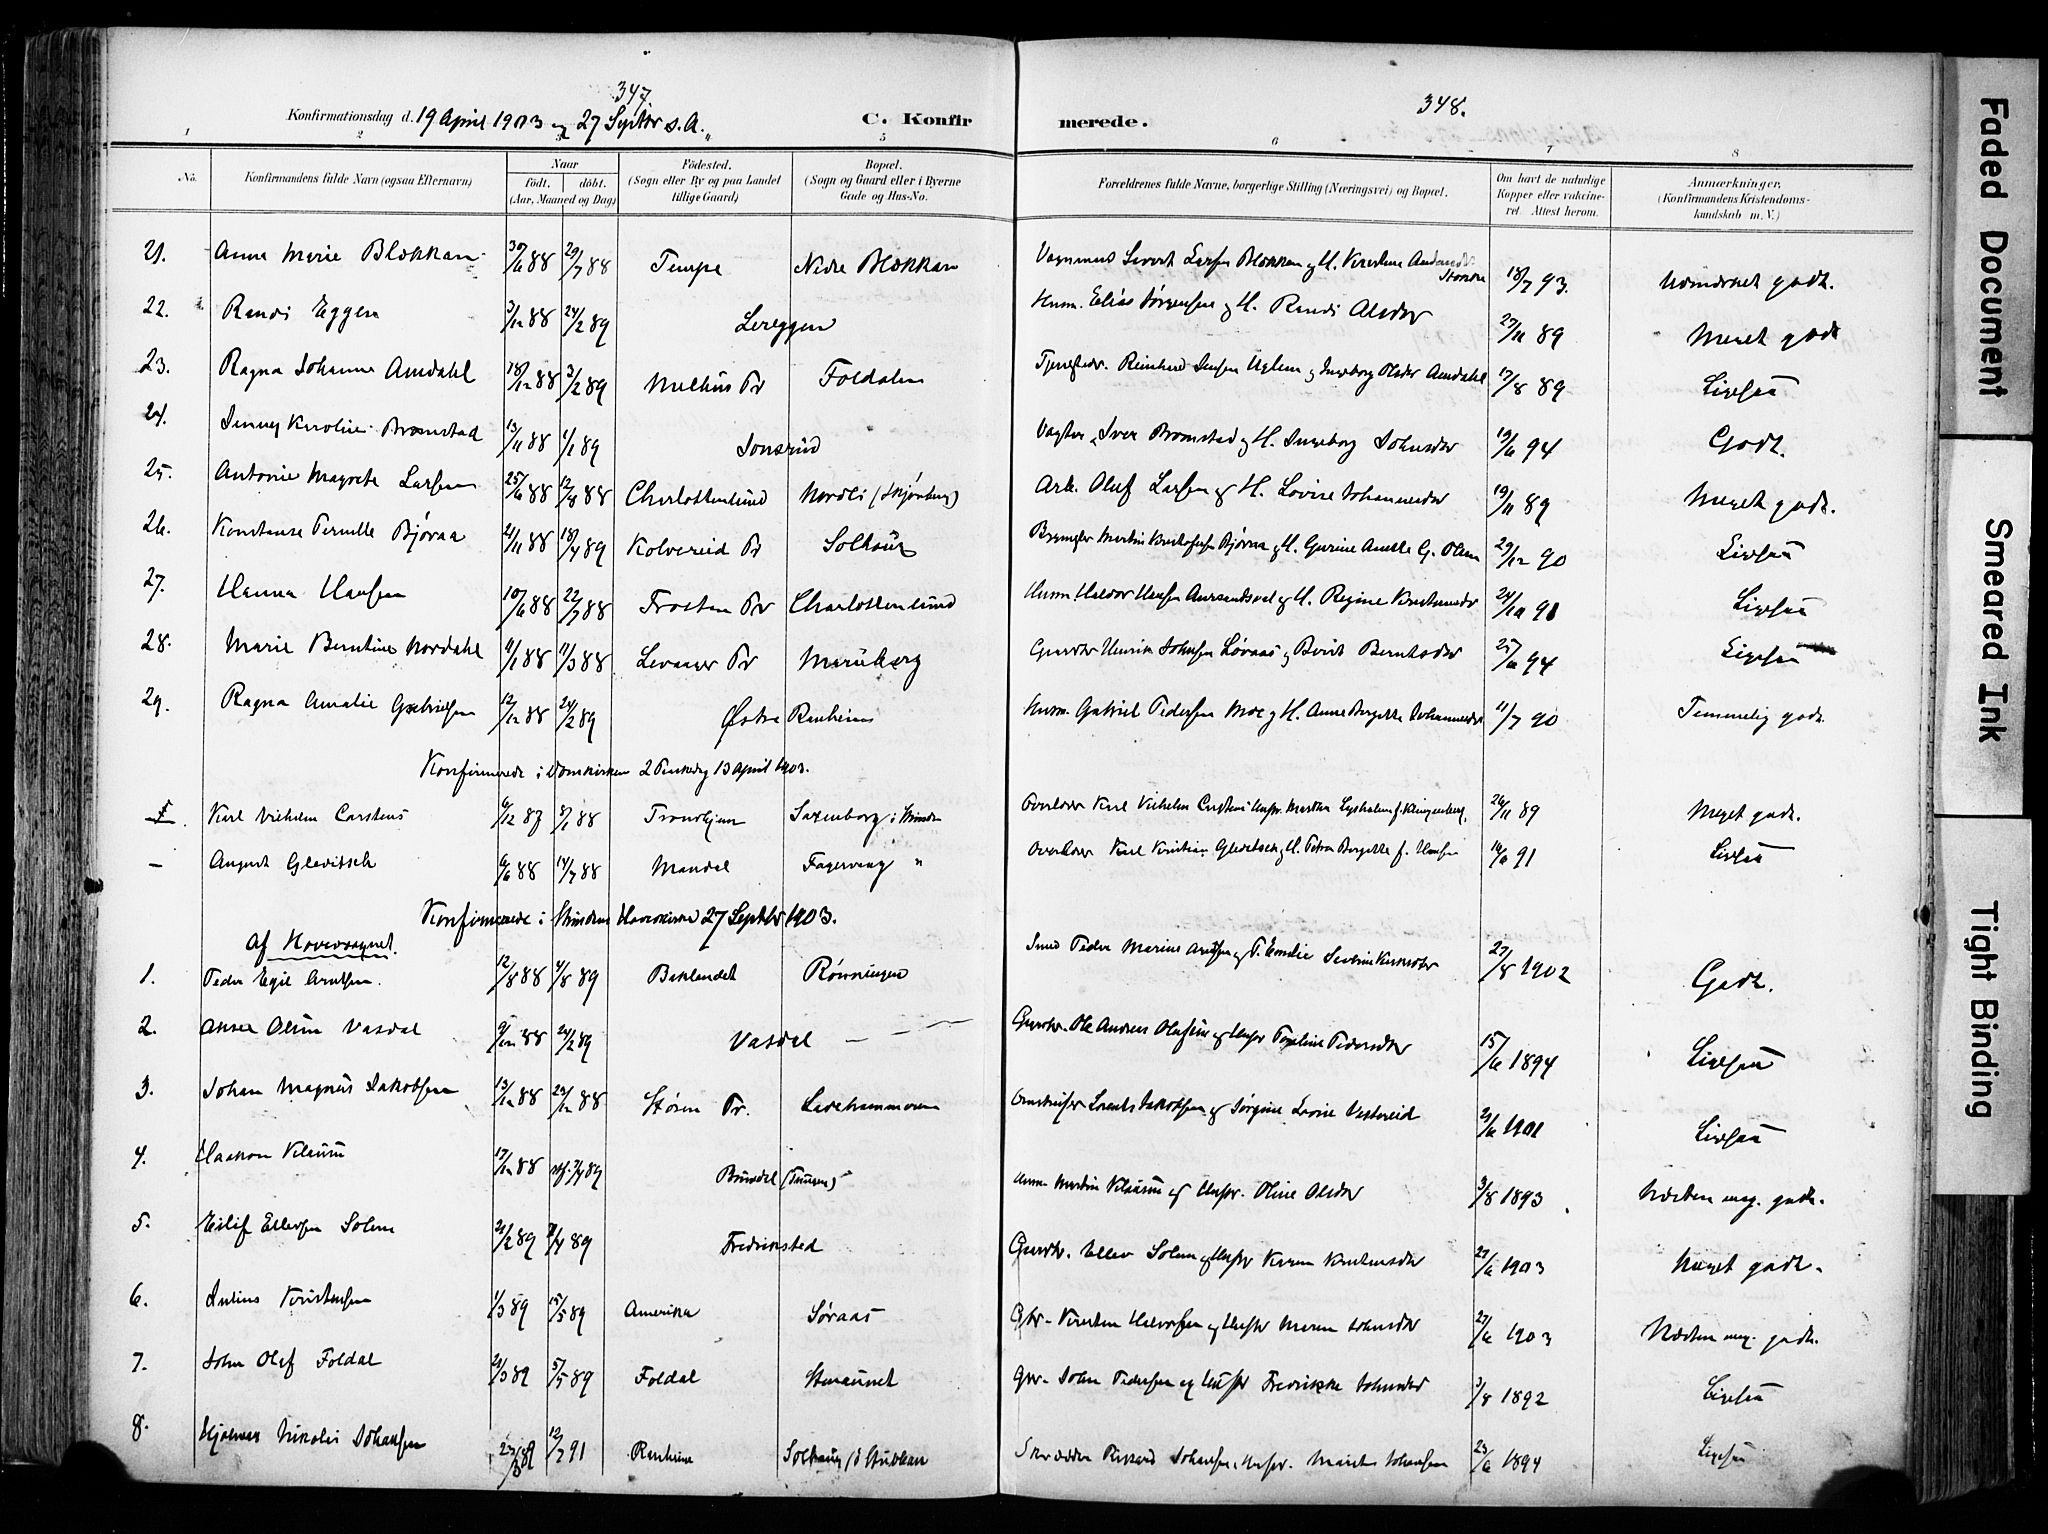 347.
348.
Konfirmationsdag d. 19 April 1903 og 27 Septbr s. A.
C. Konfir
merede.
1 2 3 4 5 6 7 8
No. Konfirmandens fulde Navn (ogsaa Efternavn) Naar født. døbt. (Aar, Maaned og Dag) Fødested. (Sogn eller By og paa Landet tillige Gaard) Bopæl. (Sogn og Gaard eller i Byerne Gade og Hus-No. Forældrenes fulde Navne, borgerlige Stilling (Næringsvei) og Bopæl. Om havt de naturlige Kopper eller vaccineret. Attest herom. Anmærkninger. (Konfirmandens Kristendomskundskab m. V.)
21. Anna Marie Blækkan 30/6 88 29/7 88 Tempe Nedre Blækkan Vognmand Sivert Larsen Blækkan og H. Kirstine 18/7 93. Udmærket godt.
22. Randi Eggen 3/12 88 24/2 89 Lereggen Husm. Elias Jørgensen og H. Randi Olsdtr 27/11 89 Meget godt
23. Ragna Johanna Amdahl 18/12 88 3/2 89 Melhus Pr Foldalen Reinhard Jensen Uglem og Ingeborg Olsdtr Amdahl 17/8 89 Ligesaa
24. Jenny Karoline Bromstad 13/11 88 1/1 89 Jonsrud Vogter Iver Bromstad og H. Ingeborg Johnsdtr 19/6 94 Godt.
25. Antonie Magrete Larsen 25/6 88 12/8 88 Charlottenlund Nordli Arb. Oluf Larsen og H. Lovise Johannesdtr 19/11 89 Meget godt.
26. Konstanse Pernille Bjøraa 21/11 88 18/4 89 Kolvereid Pr Solhaug Martin Bjøraa og H. Gurine Amalie G. Olsen 29/12 90 Ligesaa
27. Hanna Hansen 10/6 88 22/7 88 Frosten Pr Charlottenlund Husm. Haldor Hansen og H. Regine 24/10 91 Ligesaa
28. Marie Berntine Nordahl 9/1 88 11/3 88 Levanger Pr Marieborg Gaardbr Henrik Johnsen Løvaas og Berit Berntsdtr 25/6 94 Ligesaa
29. Ragna Amalie Gabrielsen 12/12 88 24/2 89 Østre Ranheim Husm. Gabriel Pedersen Moe og H. Anne Bergitte Johannesdtr 11/7 90 Temmelig godt.
Konfirmerede i Domkirken 2 Paaskedag 13 April 1903.
Karl Vilhelm Carstens 6/12 87 8/1 88 Trondhjem Saxenborg i Strinden Overlærer Karl Vilhelm Carstens Hustr. Martha Lysholm f. Klingenberg. 26/11 89 Meget godt.
— August Glevitsch 6/6 88 14/7 88 Mandal Fagervang " Overlærer Karl Kristian Glevitsch og H. Petra Bergitte f. Hansen 14/6 91 Ligesaa
Konfirmerede i Strindens Hovedkirke 27 Septbr 1903.
Af Hovedsognet.
1. Peder Egil Arntsen. 12/8 88 4/8 89 Baklandet Rønningen Smed Peder Marius Arntsen og Emilie Severine 27/8 1902 Godt.
2. Anker Olsen Vasdal 9/12 88 24/2 89 Vasdal — Gaardbr. Ole Andreas Olufsen og Hustr Pauline Pedersdtr 15/6 1894 Ligesaa
3. Johan Magnus Jakobsen 13/12 88 Støren Pr. Ladehammeren Lorents Jakobsen og Jørgine Lovise 21/6 1901 Ligesaa
4. Haakon Klausen 17/12 88 7/4 89 Brurok Husm Martin Klausen og Hustr. Oline Olsdtr 3/8 1893 Næsten meg. godt.
5. Eilif Ellevsen Solem 21/2 89 /4 89 Fredrikstad Gaardbr. Ellev Solem og Hustr Karen 27/6 1903 Meget godt.
6. Julius Kristensen 1/3 89 15/5 89 Amerika Søraas Gbr. Kristen Halvorsen og Hustr Maren Johnsdtr 27/6 1903 Næsten meg. godt.
7. John Olaf Foldal 21/3 89 5/5 89 Foldal John Pedersen og Hustr Fredrikke Johnsdtr 3/8 1892 Ligesaa
8. Hjalmar Nikolai Johansen 27/3 89 12/7 91 Ranheim Solhaug Skrædder Rikard Johansen Hustr. Marit Johansen 23/6 1894 Ligesaa
Faded Document
Smeared Ink
Tight Binding